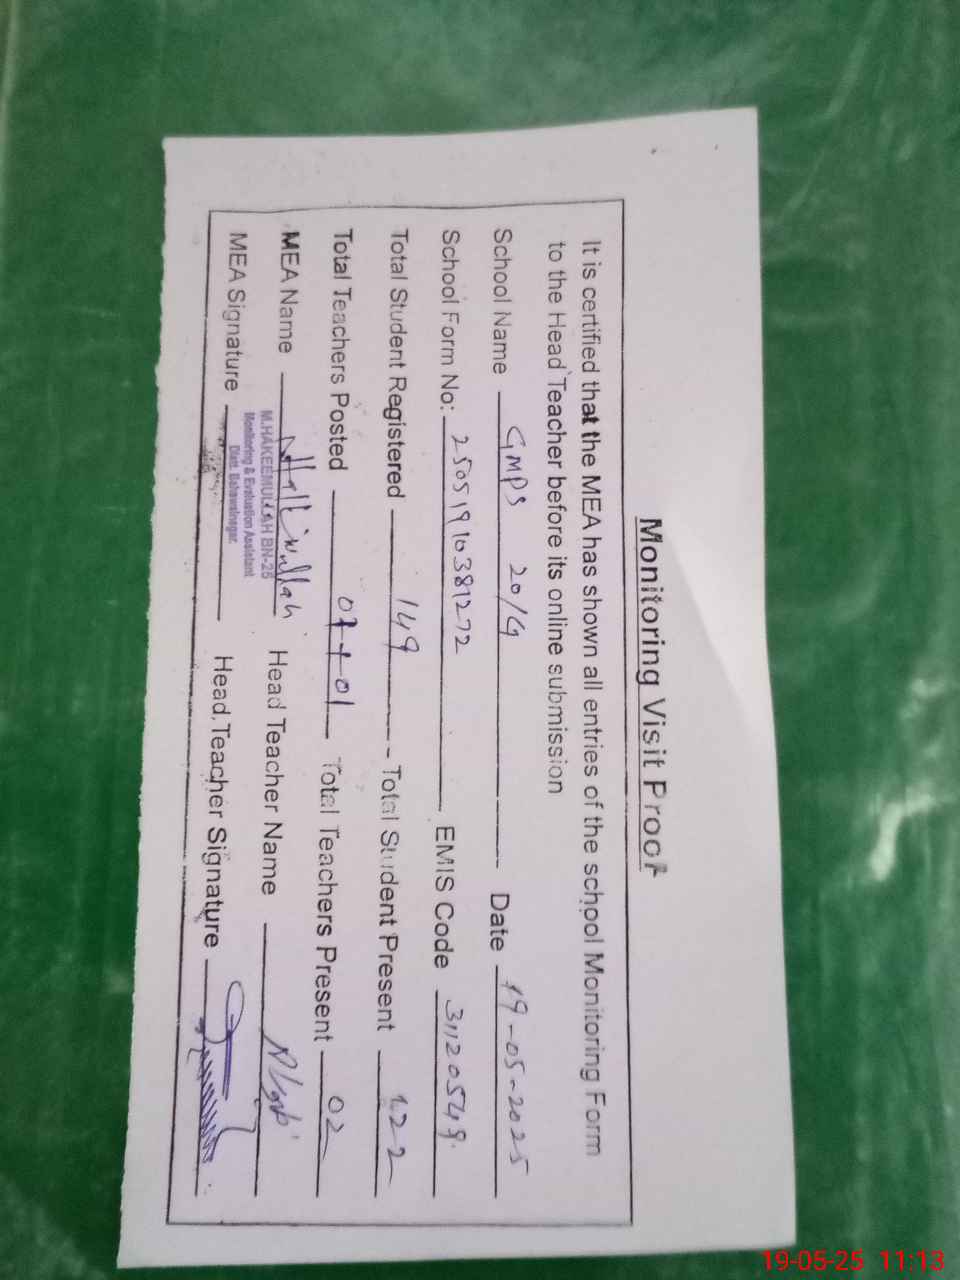 Monitoring Visit Proof
It is certified that the MEA has shown all entries of the school Monitoring Form
to the Head Teacher before its online submission
School Name GMPS 20/G Date 19-05-2025
School Form No: 25051910381272 EMIS Code 31120549
Total Student Registered 149 Total Student Present 122
Total Teachers Posted 01+01 Total Teachers Present 02
MEA Name Head Teacher Name
M.HAKEEMULLAH BN-26
Monitoring & Evaluation Assistant
Distt. Bahawalnagar.
MEA Signature Head Teacher Signature
19-05-25 11:13